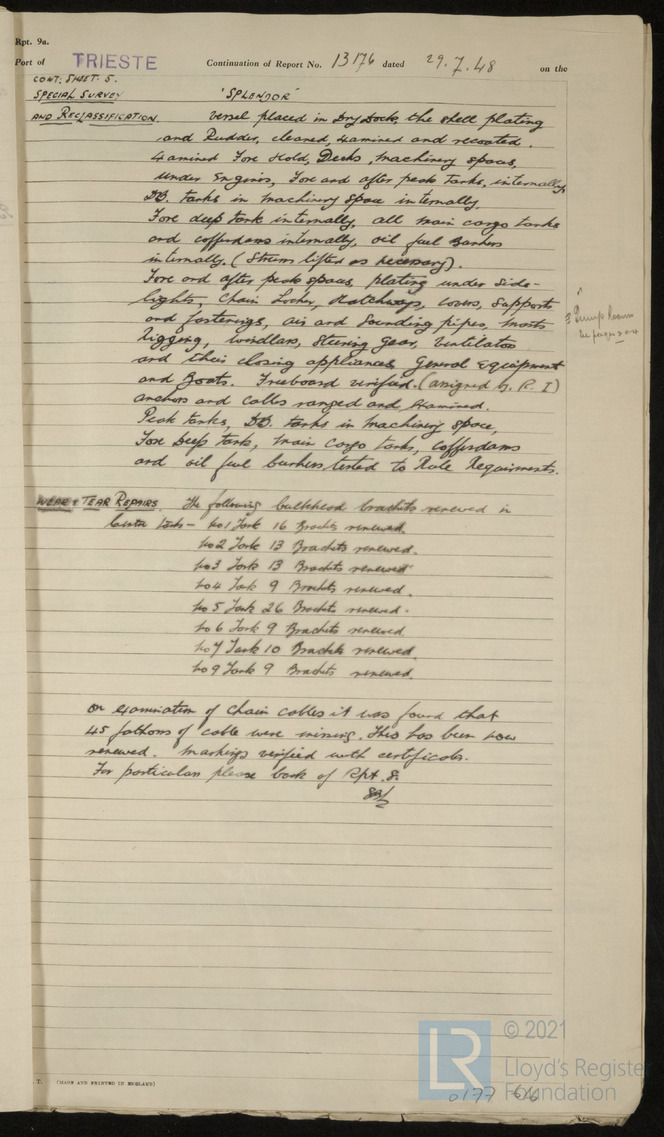 Rpt. 9a.
Port of TRIESTE Continuation of Report No. 13176 dated 29.7.48 on the
CONT: SHEET. 5.
SPECIAL SURVEY 'SPLENDOR'
AND RECLASSIFICATION. Vessel placed in Dry Dock, the shell plating
and Rudder, cleaned, examined and recoated.
Examined Fore Hold, Decks, machinery spaces,
under Engines, Fore and after peak tanks, internally
DB. tanks in machinery space internally
Fore deep tank internally, all main cargo tanks
and cofferdams internally, oil fuel Bunkers
internally. (Strums lifted as necessary).
Fore and after peak spaces, plating under side-
lights, Chain Locker, Hatchways, covers, supports
and fastenings, air and sounding pipes, masts
rigging, windlass, steering gear, ventilators
and their closing appliances General Equipment
and Boats. Freeboard verified. (assigned by R. I)
anchors and cables ranged and examined.
Peak tanks, DB. tanks in machinery space,
Fore Deep tank, main cargo tanks, cofferdams
and oil fuel bunkers tested to Rule Requirments.
Pump Room
WEAR & TEAR REPAIRS. The following bulkhead brackets renewed in
Centre tanks - No 1 Tank 16 Brackets renewed.
No 2 Tank 13 Brackets renewed.
No 3 Tank 13 Brackets renewed
No 4 Tank 9 Brackets renewed.
No 5 Tank 26 Brackets renewed.
No 6 Tank 9 Brackets renewed.
No 7 Tank 10 Brackets renewed.
No 9 Tank 9 Brackets renewed.
On examination of chain cables it was found that
45 fathoms of cable were missing. This has been now
renewed. Markings verified with certificates.
For particulars please back of Rpt. 8.
T. (MADE AND PRINTED IN ENGLAND)
LR © 2021
Lloyd's Register
Foundation
0177